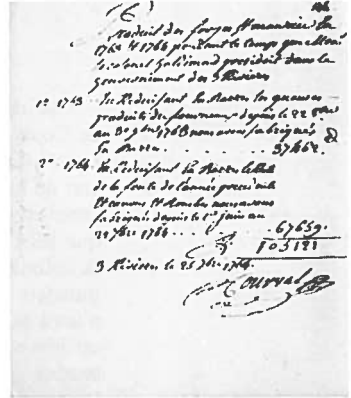 Produit des forges St maurice En
1763 et 1764 pendant le temps que Mons
le Colonel Haldimand president dans le
Gouvernement des 3 Rivieres
1º 1763 En Reduisant En Barres les gueuses
produit du fourneau depuis le 22
au 3e 9bre 1763 nous avons fabriqués
En Barre 37462
2º 1764 En Reduisant En Barres
de la fonte de l'année precedente
nous avons
fabriqués depuis le 1er juin au
7bre 1764 67659
105121
3 Rivieres le 25 7bre 1764
Courval